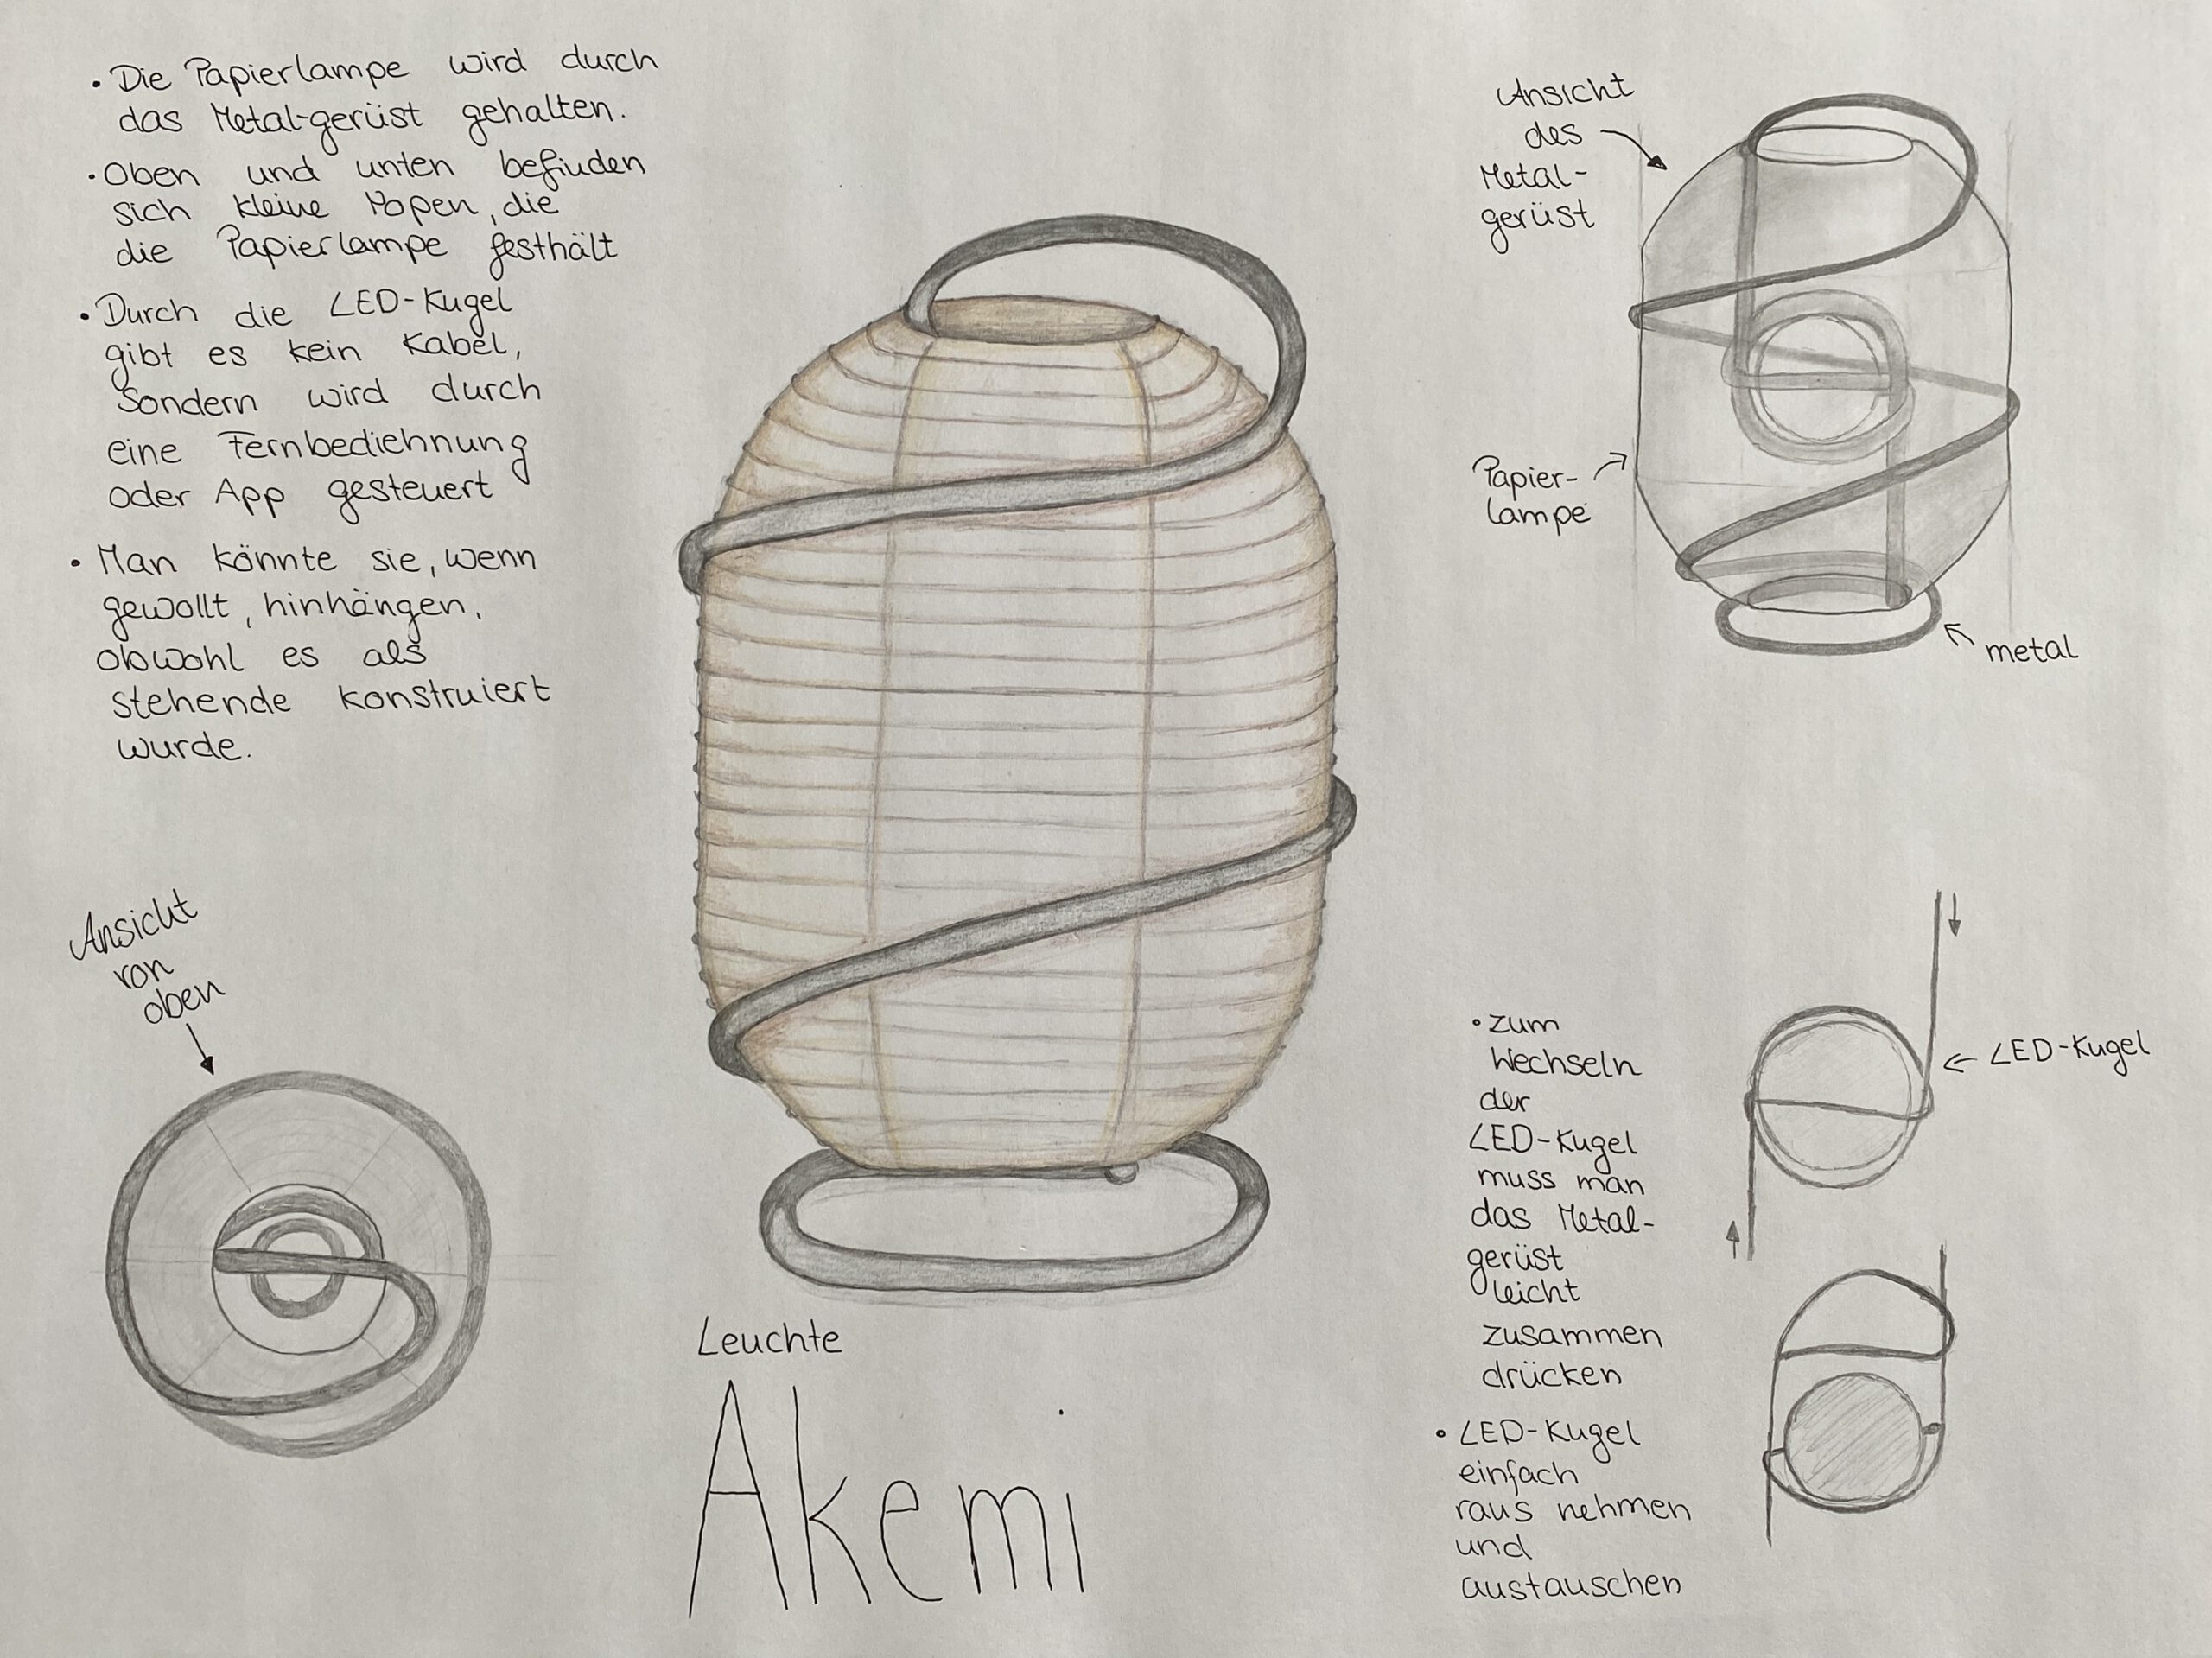 • Die Papierlampe wird durch
das Metal-gerüst gehalten.
• Oben und unten befinden
sich kleine Nopen, die
die Papierlampe festhält
• Durch die LED-Kugel
gibt es kein Kabel,
Sondern wird durch
eine Fernbediehnung
oder App gesteuert
• Man könnte sie, wenn
gewollt, hinhängen,
obwohl es als
stehende konstruiert
wurde.
Ansicht
von
oben
Leuchte
Akemi
Ansicht
des
Metal-
gerüst
Papier-
lampe
metal
• zum
Wechseln
der
LED-Kugel
muss man
das Metal-
gerüst
leicht
zusammen
drücken
• LED-Kugel
einfach
raus nehmen
und
austauschen
LED-Kugel